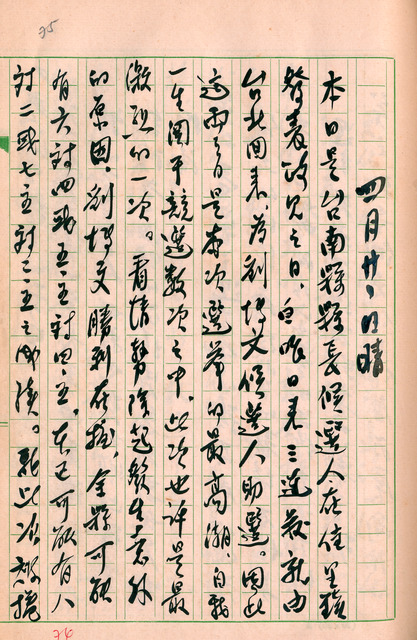 75
四月廿八日晴
本日是台南縣縣長候選人在佳里鎮
發表政見之日,自昨日來三連發就由
台北回來,為劉博文候選人助選。因此
這兩三日是本次選舉的最高潮,自我
一生關于競選數次之中,此次也許是最
激烈的一次。看情勢除起發生意外
的原因,劉博文勝利在握,全縣可能
有六對四或五.五對四.五,本區可能有八
對二或七.五對二.五之成績。就此次
76